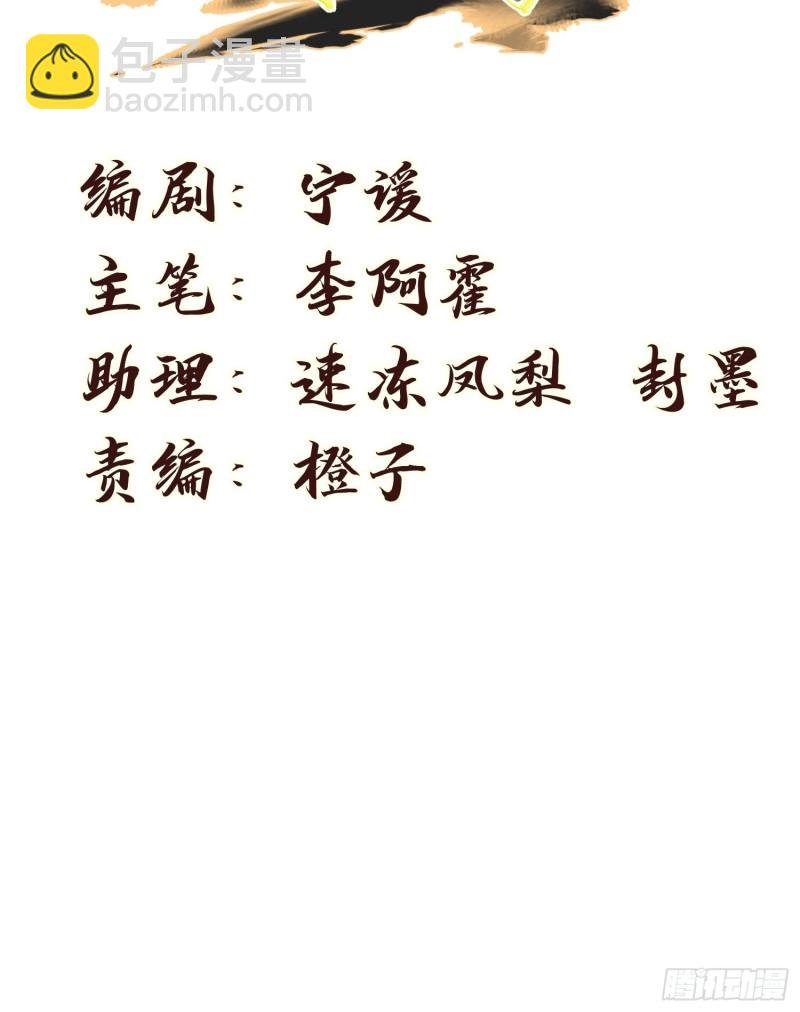 包子漫畫
baozimh.com
编剧：宁谖
主笔：李阿霍
助理：速冻凤梨 封墨
责编：橙子
腾讯动漫